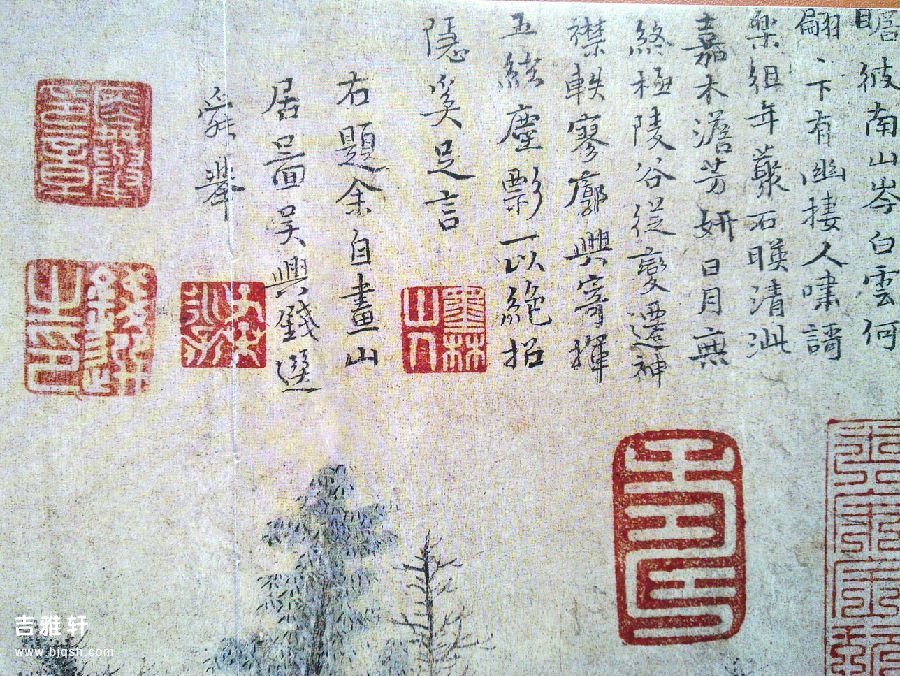 瞻彼南山岑白雲何
翩〻下有幽棲人嘯謌
樂徂年叢石暎清泚
嘉木澹芳妍日月無
終極陵谷從變遷神
襟軼寥廓興寄揮
五絃塵影一以絕招
隱奚足言
右題余自畫山
居圖吳興錢選
舜舉
墨林山人
吉雅轩
www.bjqsh.com